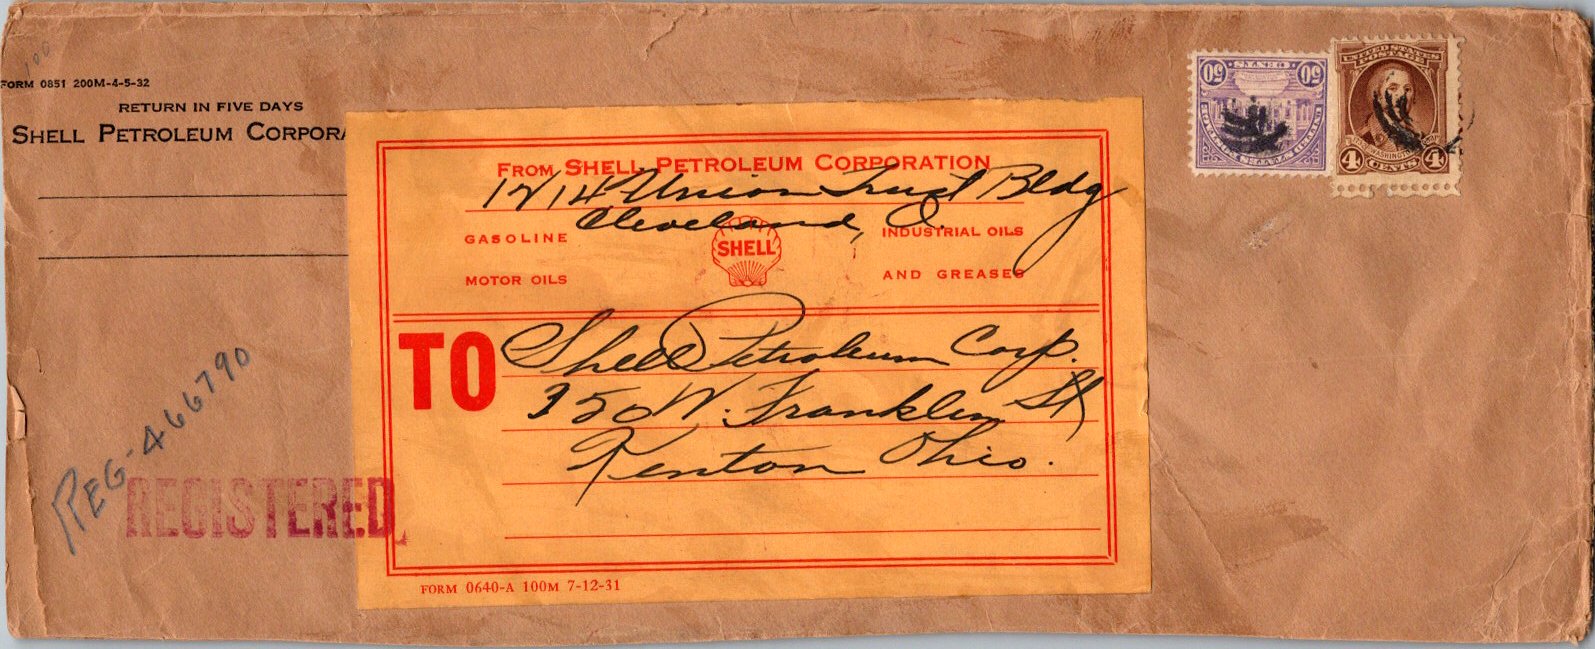 100
FORM 0851 200M-4-5-32
RETURN IN FIVE DAYS
SHELL PETROLEUM CORPORA
FROM SHELL PETROLEUM CORPORATION
1214 Union Trust Bldg
Cleveland, O.
GASOLINE
MOTOR OILS
SHELL
INDUSTRIAL OILS
AND GREASES
TO
Shell Petroleum Corp.
350 W. Franklin St
Kenton Ohio.
FORM 0640-A 100M 7-12-31
REG-466790
REGISTERED
50 CENTS 50
UNITED STATES POSTAGE
UNITED STATES
POSTAGE
WASHINGTON
4 CENTS 4